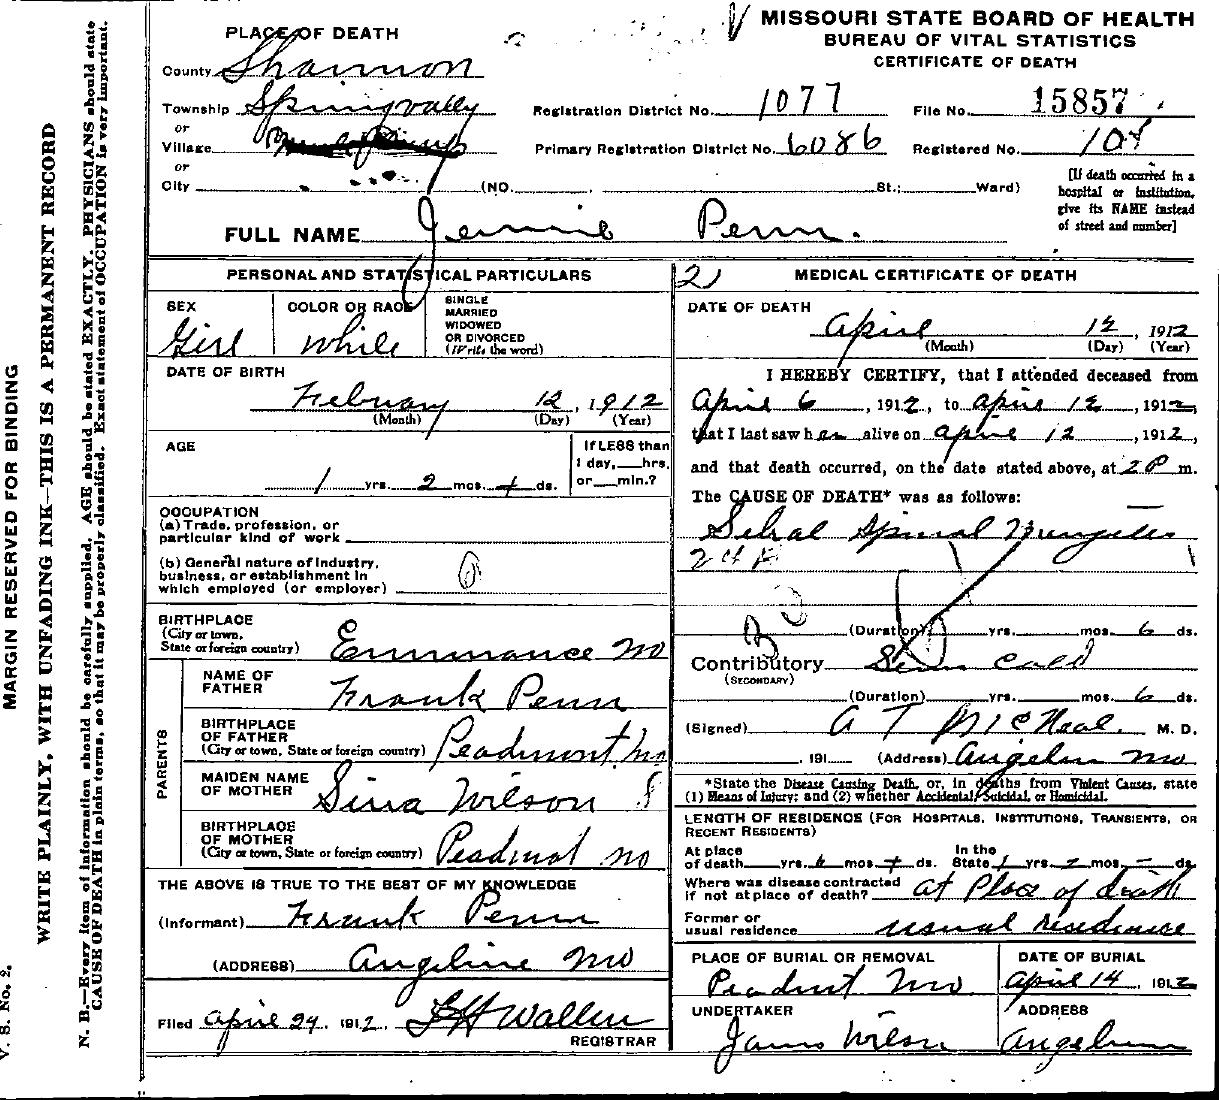 MISSOURI STATE BOARD OF HEALTH
BUREAU OF VITAL STATISTICS
CERTIFICATE OF DEATH
PLACE OF DEATH
County Shannon
Township Springvally
or
Village
or
City (NO. , St.; Ward)
Registration District No. 1077 File No. 15857
Primary Registration District No. 6086 Registered No. 108
[If death occurred in a
hospital or institution,
give its NAME instead
of street and number]
FULL NAME Jennie Penn.
PERSONAL AND STATISTICAL PARTICULARS
SEX Girl
COLOR OR RACE While
SINGLE
MARRIED
WIDOWED
OR DIVORCED
(Write the word)
DATE OF BIRTH
February 12, 1912
(Month) (Day) (Year)
AGE
1 yrs. 2 mos. + ds.
If LESS than
1 day, hrs.
or min.?
OCCUPATION
(a) Trade, profession, or
particular kind of work
(b) General nature of industry,
business, or establishment in
which employed (or employer) 0
BIRTHPLACE
(City or town,
State or foreign country) Emmnance Mo
PARENTS
NAME OF
FATHER Frank Penn
BIRTHPLACE
OF FATHER
(City or town, State or foreign country) Peadmont. Mo
MAIDEN NAME
OF MOTHER Sina Wilson
BIRTHPLACE
OF MOTHER
(City or town, State or foreign country) Peadmot Mo
THE ABOVE IS TRUE TO THE BEST OF MY KNOWLEDGE
(Informant) Frank Penn
(ADDRESS) Angeline Mo
Filed April 24, 1912, Wallen
REGISTRAR
21 MEDICAL CERTIFICATE OF DEATH
DATE OF DEATH
April 12, 1912
(Month) (Day) (Year)
I HEREBY CERTIFY, that I attended deceased from
April 6, 1912, to April 12, 1912,
that I last saw her alive on April 12, 1912,
and that death occurred, on the date stated above, at 2 P m.
The CAUSE OF DEATH* was as follows:
Spinal
(Duration) yrs. mos. 6 ds.
Contributory Cald
(SECONDARY)
(Duration) yrs. mos. 6 ds.
(Signed) A T McNeal. M. D.
, 191 (Address) Angelin Mo
*State the Disease Causing Death, or, in deaths from Violent Causes, state
(1) Means of Injury; and (2) whether Accidental, Suicidal, or Homicidal.
LENGTH OF RESIDENCE (FOR HOSPITALS, INSTITUTIONS, TRANSIENTS, OR
RECENT RESIDENTS)
At place
of death yrs. 6 mos. + ds.
In the
State 1 yrs. 2 mos. - ds.
Where was disease contracted
if not at place of death? at Place of death
Former or
usual residence usual residence
PLACE OF BURIAL OR REMOVAL
Peadmt Mo
DATE OF BURIAL
April 14, 1912
UNDERTAKER
James Wilson
ADDRESS
Angeline
V. S. No. 2.
MARGIN RESERVED FOR BINDING
WRITE PLAINLY, WITH UNFADING INK—THIS IS A PERMANENT RECORD
N. B.—Every item of information should be carefully supplied. AGE should be stated EXACTLY. PHYSICIANS should state
CAUSE OF DEATH in plain terms, so that it may be properly classified. Exact statement of OCCUPATION is very important.